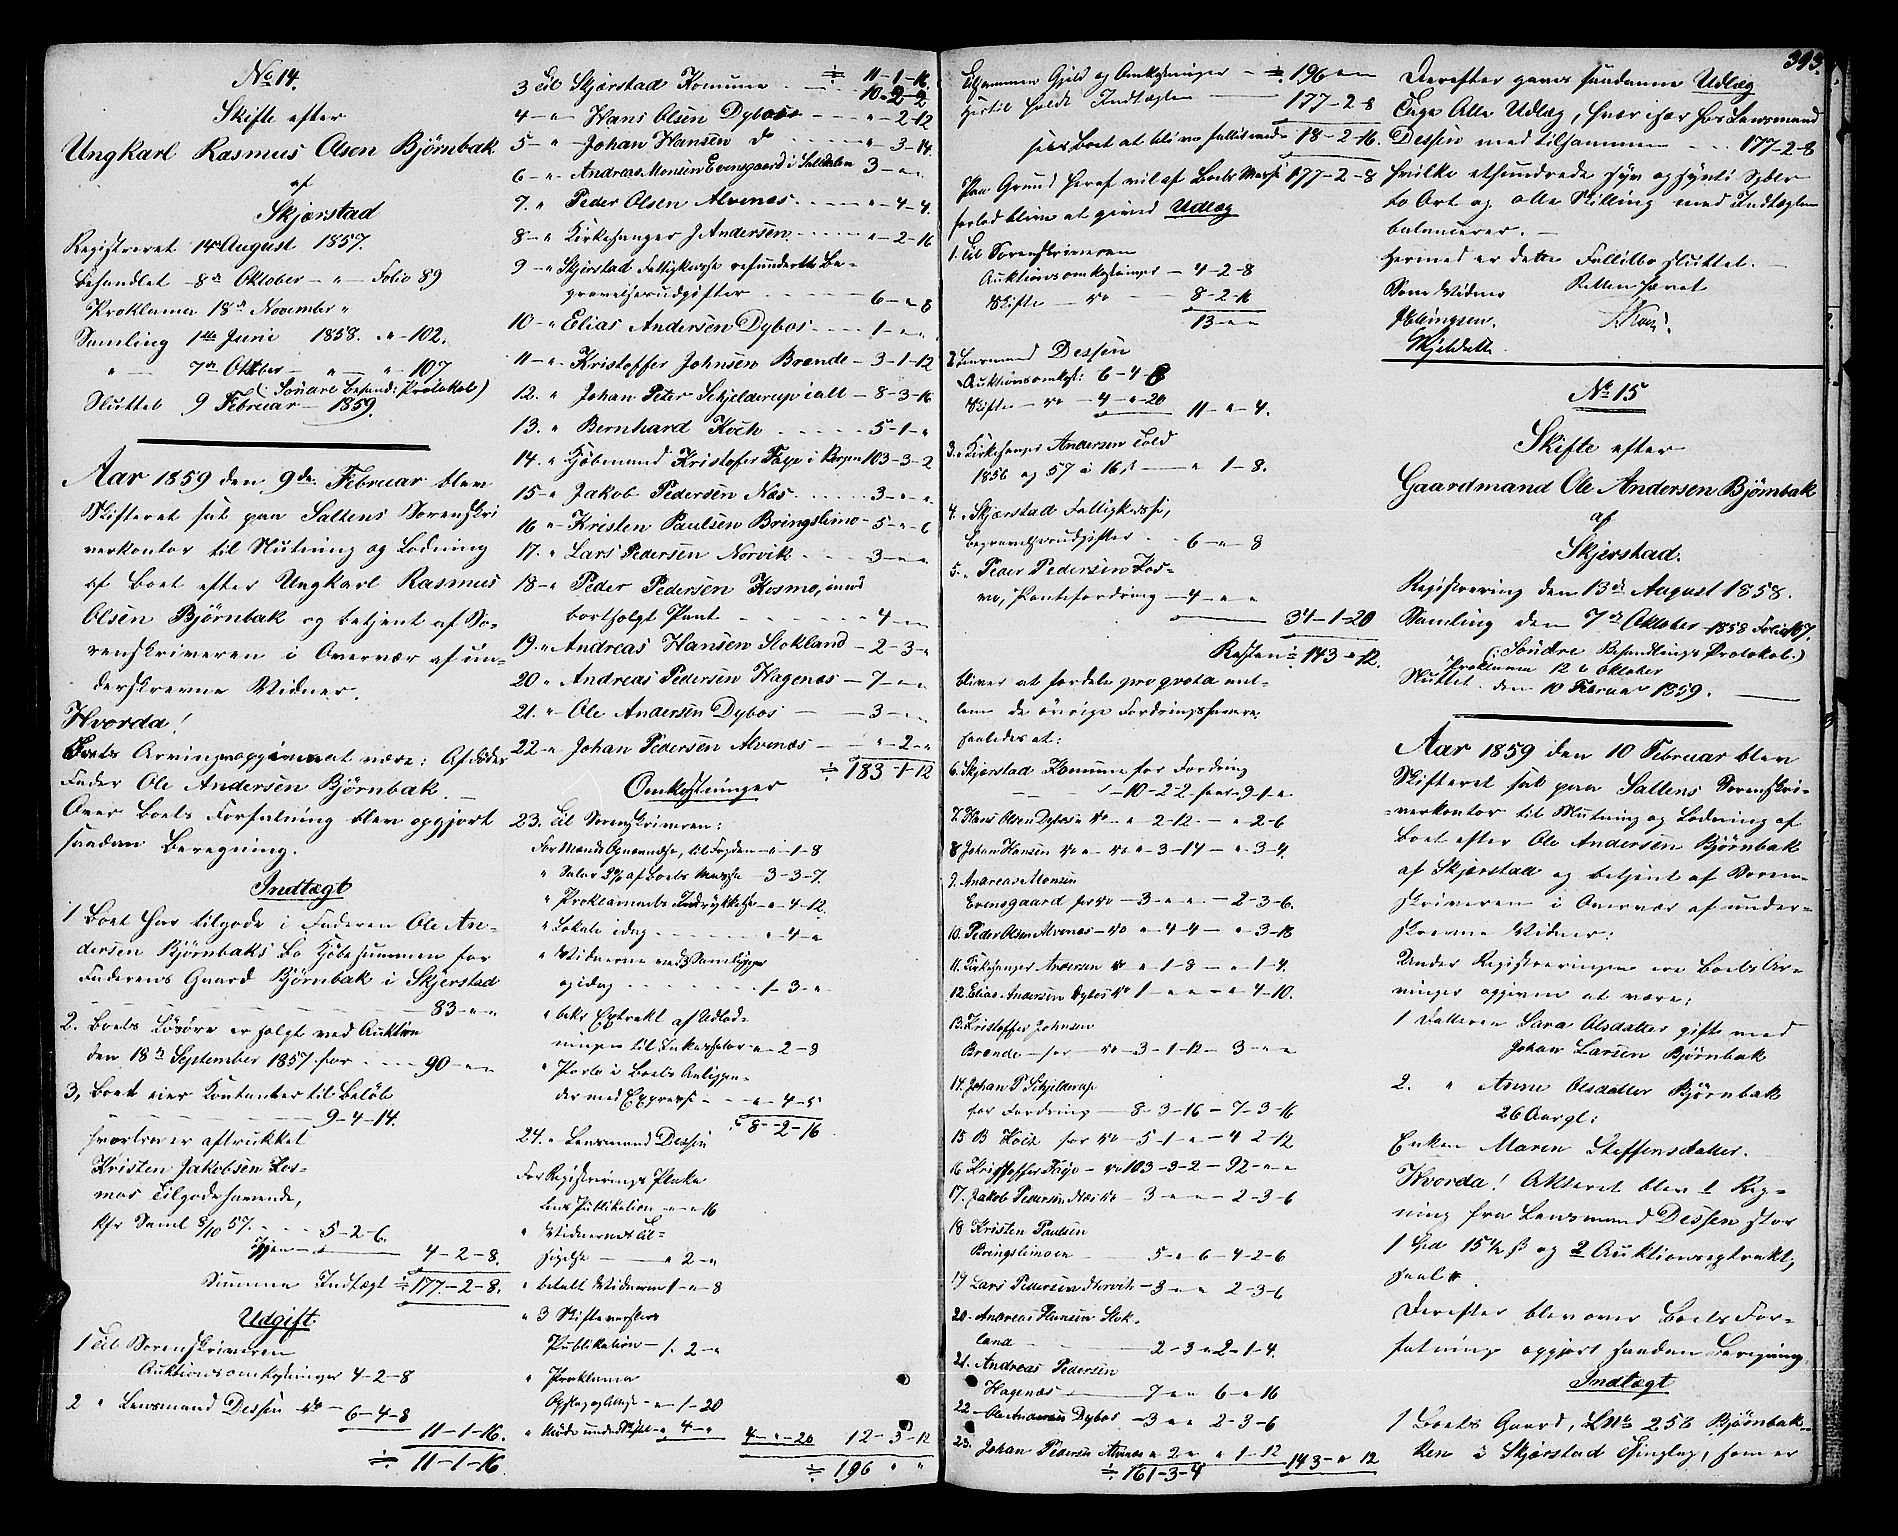 No 14.
Skifte efter
Ungkarl Rasmus Olsen Björnbak
af
Skjerstad
Registreret 14de August 1857.
Behandlet 8de Oktober - " - Folio 89
Proklama 18de November "
Samling 1ste Juni 1858. " - 102.
" - 7de Oktober - " - " - 107
(Söndre Behand: Protokol)
Sluttet 9 Februar - 1859.
Aar 1859 den 9de Februar blev
Skifteret sat paa Saltens Sorenskri
verkontor til Slutning og Lodning
af Boet efter Ungkarl Rasmus
Olsen Björnbak og betjent af So-
renskriveren i Overvær af un-
derskrevne Vidner.
Hvorda!
Boets Arving opgivet at være: Afdödes
Fader Ole Andersen Björnbak.
Over Boets Forfatning blev opgjort
saadan Beregning.
Indtægt
1 Boet har tilgode i Faderen Ole An-
dersen Björnbaks Bo Kjöbesummen for
Faderens Gaard Björnbak i Skjerstad
83 - " - "
2. Boets Lösöre er solgt ved Auktion
den 18de September 1857 for - 90 - " - "
3, Boet eier Kontanter til Belöb
9-4-14.
hvorfra er aftrukket
Kristen Jakobsen Kos-
mos Tilgodehavende,
Kfr Saml 8/10 57. 5-2-6.
Igjen 4-2-8.
Summa Indtægt 177-2-8.
Udgift.
1 Til Sorenskriveren
Auktionsomkostninger 4-2-8
2 " Lensmand Dessen do 6-4-8
11-1-16.
11-1-16
11-1-16.
3 Til Skjerstad Komune 10-2-2
4 - " - Hans Olsen Dybos - " - 2-12
5 - " - Johan Hansen do " 3-14.
6 - " - Andreas Monsen Evensgaard i Saltdalen 3 - " - "
7. " Peder Olsen Alvenæs " - 4-4.
8 - " Kirkesanger J Andersen " - 2-16
9 - " Skjerstad Fattigkasse refunderte Be-
gravelsesudgifter 6 - " - 8
10 - " Elias Andersen Dybos 1 - " - "
11 - " Kristoffer Johnsen Brende - 3-1-12
12. " Johan Peter Schjelderup ialt - 8-3-16
13. " Bernhard Koch 5-1-"
14. " Kjöbmand Kristofer Faye i Bergen 103-3-2
15 - " Jakob Pedersen Næs 3 - " - "
16 - " Kristen Paulsen Bringslimo - 5 - " - 6
17. " Lars Pedersen Norvik 3 - " - "
18 - " Peder Pedersen Kosmo, imod
bortsolgt Pant 4 - " - "
19. " Andreas Hansen Stokland - 2-3-"
20 " Andreas Pedersen Hagenæs - 7 - " - "
21. " Ole Andersen Dybos 3 - " - "
22 - " Johan Pedersen Alvenæs " - 2 - "
183-1-12
Omkostninger
23. Til Sorenskriveren:
For Mænds Opnævnelse, til Fogden - " - 1-8
" Salar 2% af Boets Masse 3-3-7.
" Proklamaets Indrykkelse - " - 4-12.
" Lokale idag " 4 - "
" Vidnerne ved 3 Samlinger
og idag 1-3-"
" bekr Extrakt af Udlod-
ningen til Inkassator " - 2-8
" Porto i Boets Anliggen-
der med Expresse " - 4-5
8-2-16
24. " Lensmand Dessen
For Registrerings Plaka
tens Publikation " - 16
" Vidnernes Til-
sigelse " 2 - "
" betalt Vidnerne 1 - " - 8
" 3 Skiftevarslers
Publikation - 1. 2 - "
" Proklama
Opslag og Attest " - 1-20
" Möde under Skiftet " 4 - "
4 - " - 20 12-3-12
196 " "
Tilsammen Gjeld og Omkostninger 196 " "
Hertil haves Indtægten 177-2-8
sees Boet at blive fallit med 18-2-16.
Paa Grund heraf vil af Boets Masse 177-2-8
forlods blive at givne Udlæg
1. Til Sorenskriveren
Auktionsomkostninger - 4-2-8
Skifte - do 8-2-16
13 - " - "
2 Lensmand Dessen
Auktionsomkost: 6-4-8
Skifte - do - 4 - " - 20 11 - " - 4.
3. Kirkesanger Andersen Told
1856 og 57 à 16 ß " 1-8.
4. Skjerstad Fattigkasse,
Begravelsesudgifter 6 - " - 8
5. " Peder Pedersen Kos-
mo, Pantefordring - 4 - " "
34-1-20
Resten 143 - " - 12.
bliver at fordele pro qvota mel-
lem de övrige Fordringshavere,
saaledes at:
6. Skjerstad Komune for Fordring
10-2-2 faar 9-1-"
7. Hans Olsen Dybos " do " 2-12 - " 2-6
8 Johan Hansen do " - do " 3-14 - " 3-4.
9. Andreas Monsen
Evensgaard for do - 3 - " - " - 2-3-6.
10. Peder Olsen Alvenæs - do " 4-4 - " 3-18
11. Kirkesanger Andersen do " 1-8 - " 1-4.
12. Elias Andersen Dybos do 1 - " - " - " 4-10.
13. Kristoffer Johnsen
Brende - for - do - 3-1-12 - 3 - " - "
14. Johan P Schjelderup
for Fordring 8-3-16 - 7-3-16
15 B Koch for do - 5-1-" - 4 2-12
16 Kristoffer Faye - do 103-3-2 - 92 - " - "
17. Jakob Pedersen Næs do - 3 - " - " - 2-3-6
18 Kristen Paulsen
Bringslimoen 5 - " 6 - 4-2-6
19 Lars Pedersen Norvik - 3 - " - " 2-3-6
20. Andreas Hansen Stok-
land 2-3 " 2-1-4.
21. Andreas Pedersen
Hagenæs 7 " " 6 " 16
22 Ole Andersen Dybos - 3 " " 2-3-6
23. Johan Pedersen Alvenæs " 2 " " 1-12 143 - " 12
161-3-4
393.
Derefter gaves saadanne Udlæg
Tage Alle Udlæg, hver især hos Lensmand
Dessen med tilsammen 177-2-8
hvilke ethundrede syv og sytti Spdler
to Ort og otte Skilling med Indtægten
balancerer. -
Hermed er dette Fallitbo sluttet. -
Som Vidner Retten hævet
J Ellingsen.
Skjeldsett
No 15
Skifte efter
Gaardmand Ole Andersen Björnbak
af
Skjerstad.
Registrering den 13de August 1858.
Samling den 7de Oktober 1858 Folio 107.
(: Söndre Behandlings Protokol.)
Proklama 12te Oktober
Sluttet den 10 Februar 1859.
Aar 1859 den 10 Februar blev
Skifteret sat paa Saltens Sorenskri-
verkontor til Slutning og Lodning af
Boet efter Ole Andersen Björnbak
af Skjerstad og betjent af Soren-
skriveren i Overvær af under-
skrevne Vidner:
Under Registreringen ere Boets Ar-
vinger opgivne at være:
1 Datteren Sara Olsdatter gift med
Johan Larsen Björnbak
2. " Anne Olsdatter Björnbak
26 Aar gl:
Enken Maren Steffensdatter.
Hvorda! Akteret blev 1 Reg-
ning fra Lensmand Dessen stor
1 Spd 15½ ß og 2 Auktionsextrakt,
saal.
Derefter blev over Boets For-
fatning opgjort saadan Beregning
Indtægt
1 Boets Gaard, LNo 256 Björnbak-
ken i Skjerstad Thinglag, som er